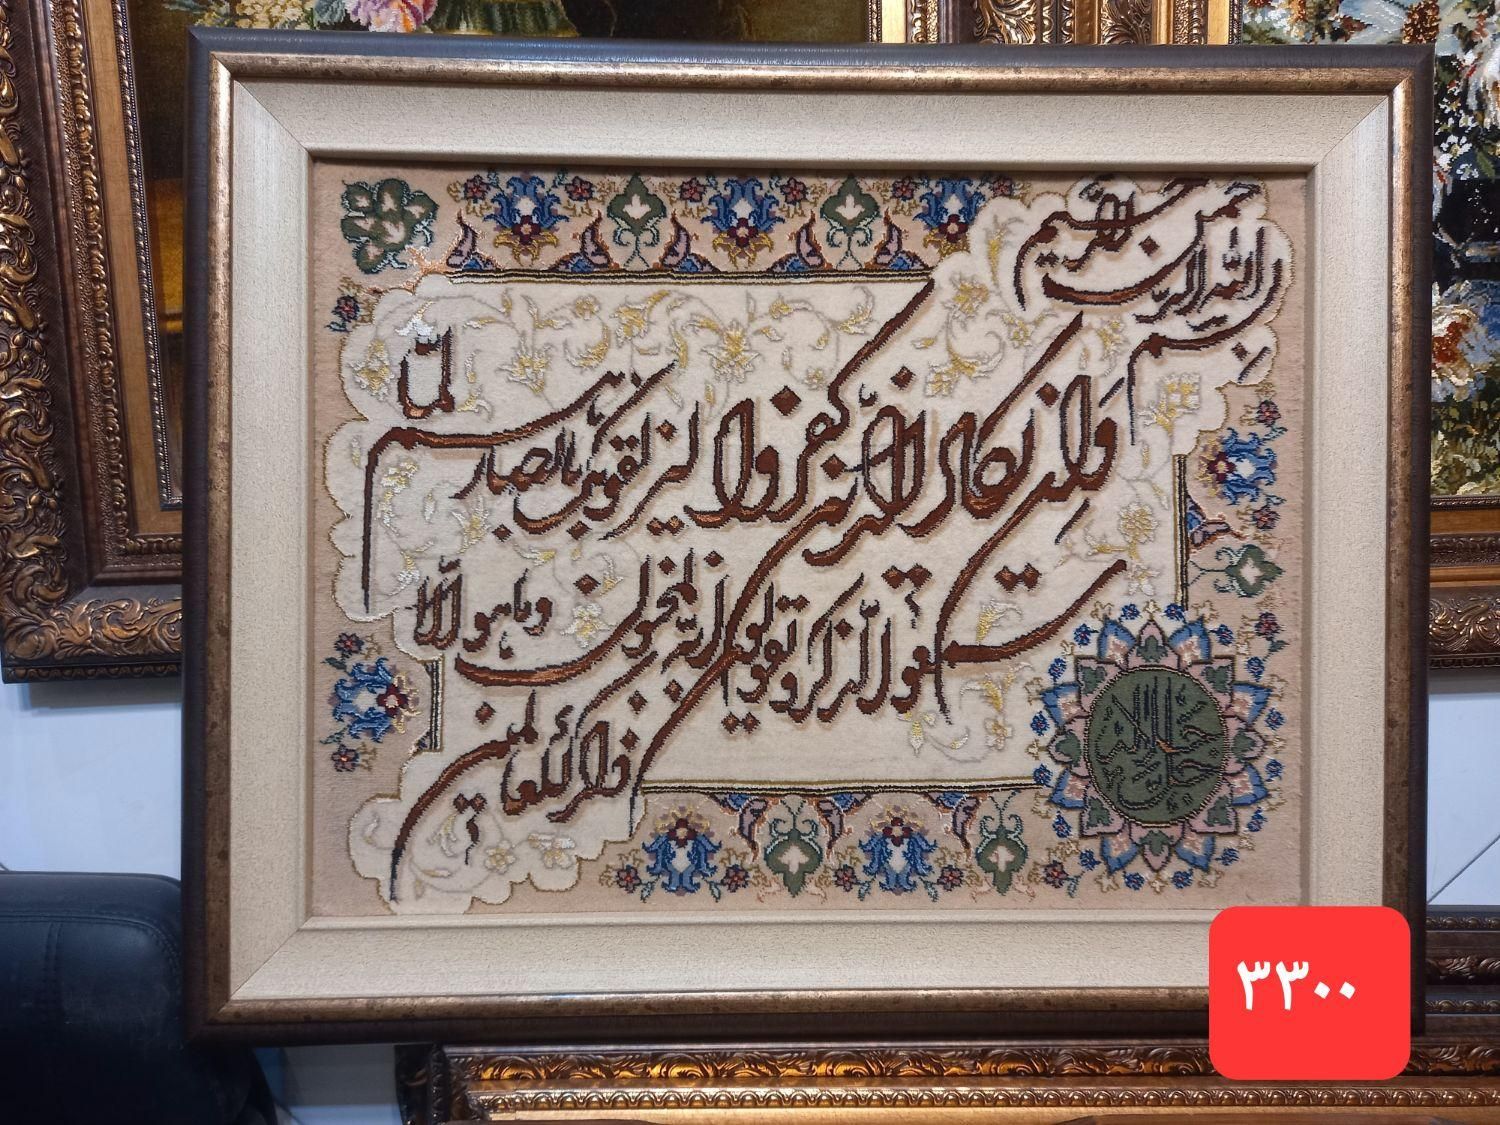 بسم الله الرحمن الرحیم
وان یکاد الذین کفروا لیزلقونک بابصارهم لما
سمعوا الذکر و یقولون انه لمجنون وما هو الا
ذکر للعالمین
۳۳۰۰